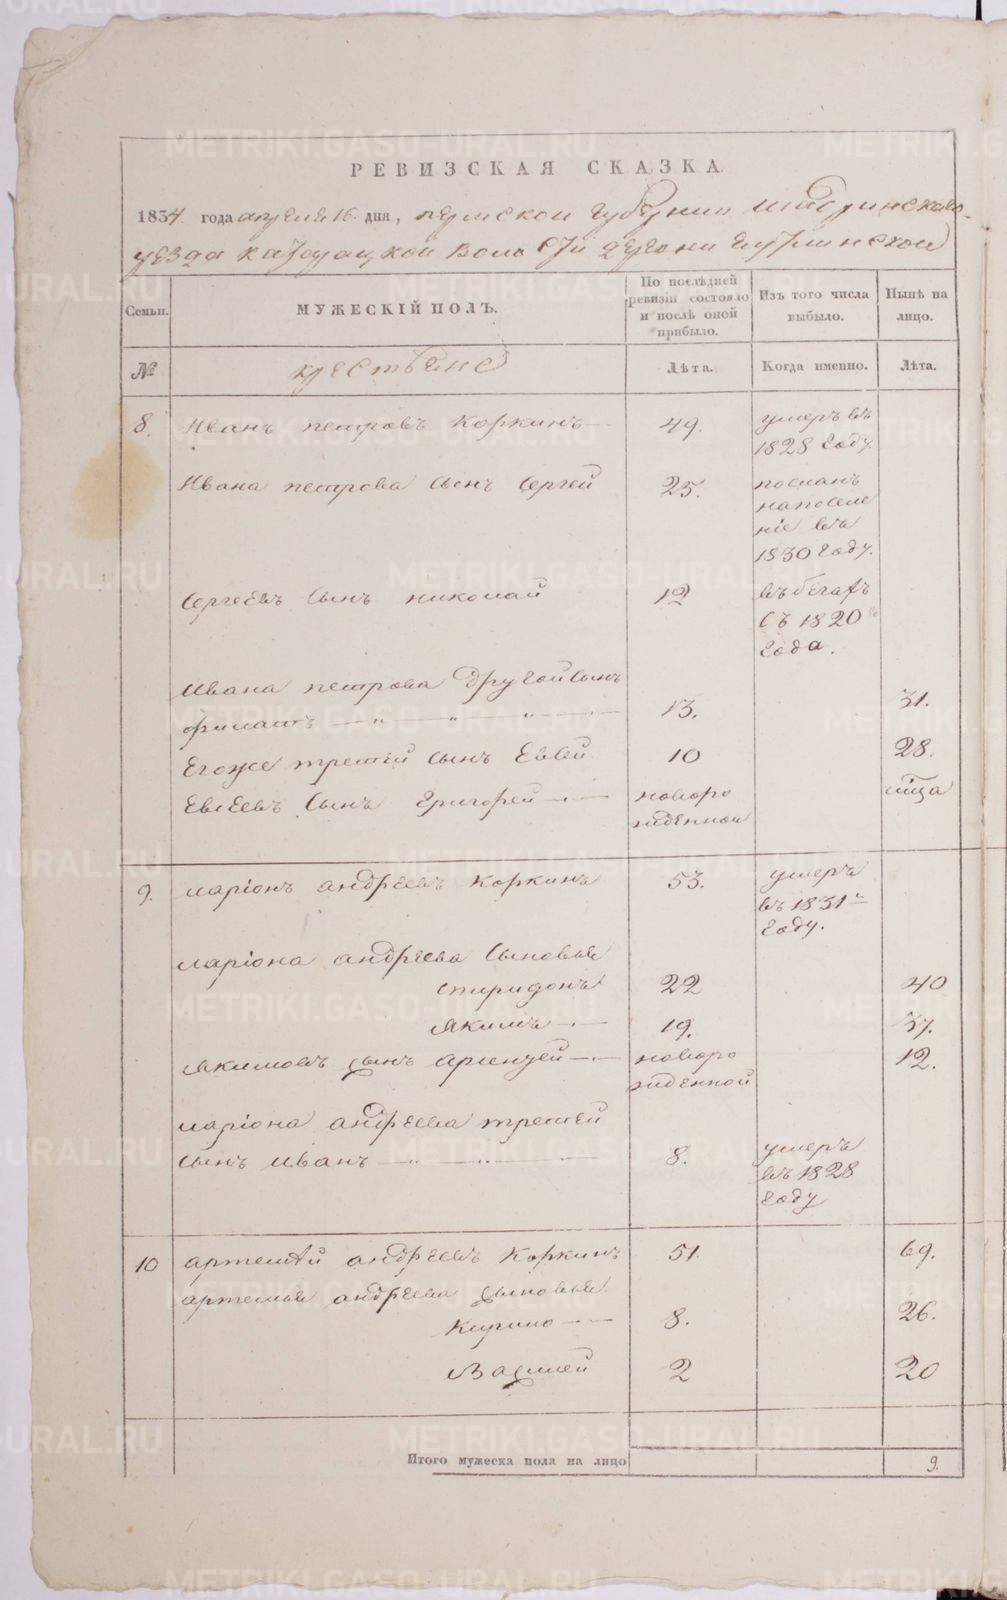 РЕВИЗСКАЯ СКАЗКА
1834. года апреля 16. дня, пермской губернии шадринского
уезда катайцкой волости деревни
Семьи. МУЖЕСКІЙ ПОЛЪ. По послѣдней ревизіи состояло и послѣ оной прибыло. Изъ того числа выбыло. Нынѣ на лицо.
№ крестьяне Лѣта. Когда именно. Лѣта.
8. Иванъ петровъ Коркинъ 49. умеръ въ
1828 году
Ивана петрова сынъ Сергей 25. посланъ
на поселе
ніе въ
1830 году.
Сергеевъ Сынъ николай 12 въ бегахъ
съ 1820
года.
Ивана петрова другой сынъ
филатъ 13. 31.
Егоже третей сынъ Евсей 10 28.
Евсеевъ Сынъ Григорей новоро
жденной
9. ларіонъ андреевъ Коркинъ 53. умеръ
въ 1831
году.
ларіона андреева сыновья
спиридонъ 22 40
якимъ 19. 37.
якимовъ сынъ новоро 12.
жденной
ларіона андреева третей
сынъ иванъ 8. умеръ
въ 1828
году
10 артемей андреевъ Коркинъ 51. 69.
артемья андреева сыновья
Кирило 8. 26.
Василей 2 20
Итого мужеска пола на лицо 9.
METRIKI.GASO-URAL.RU